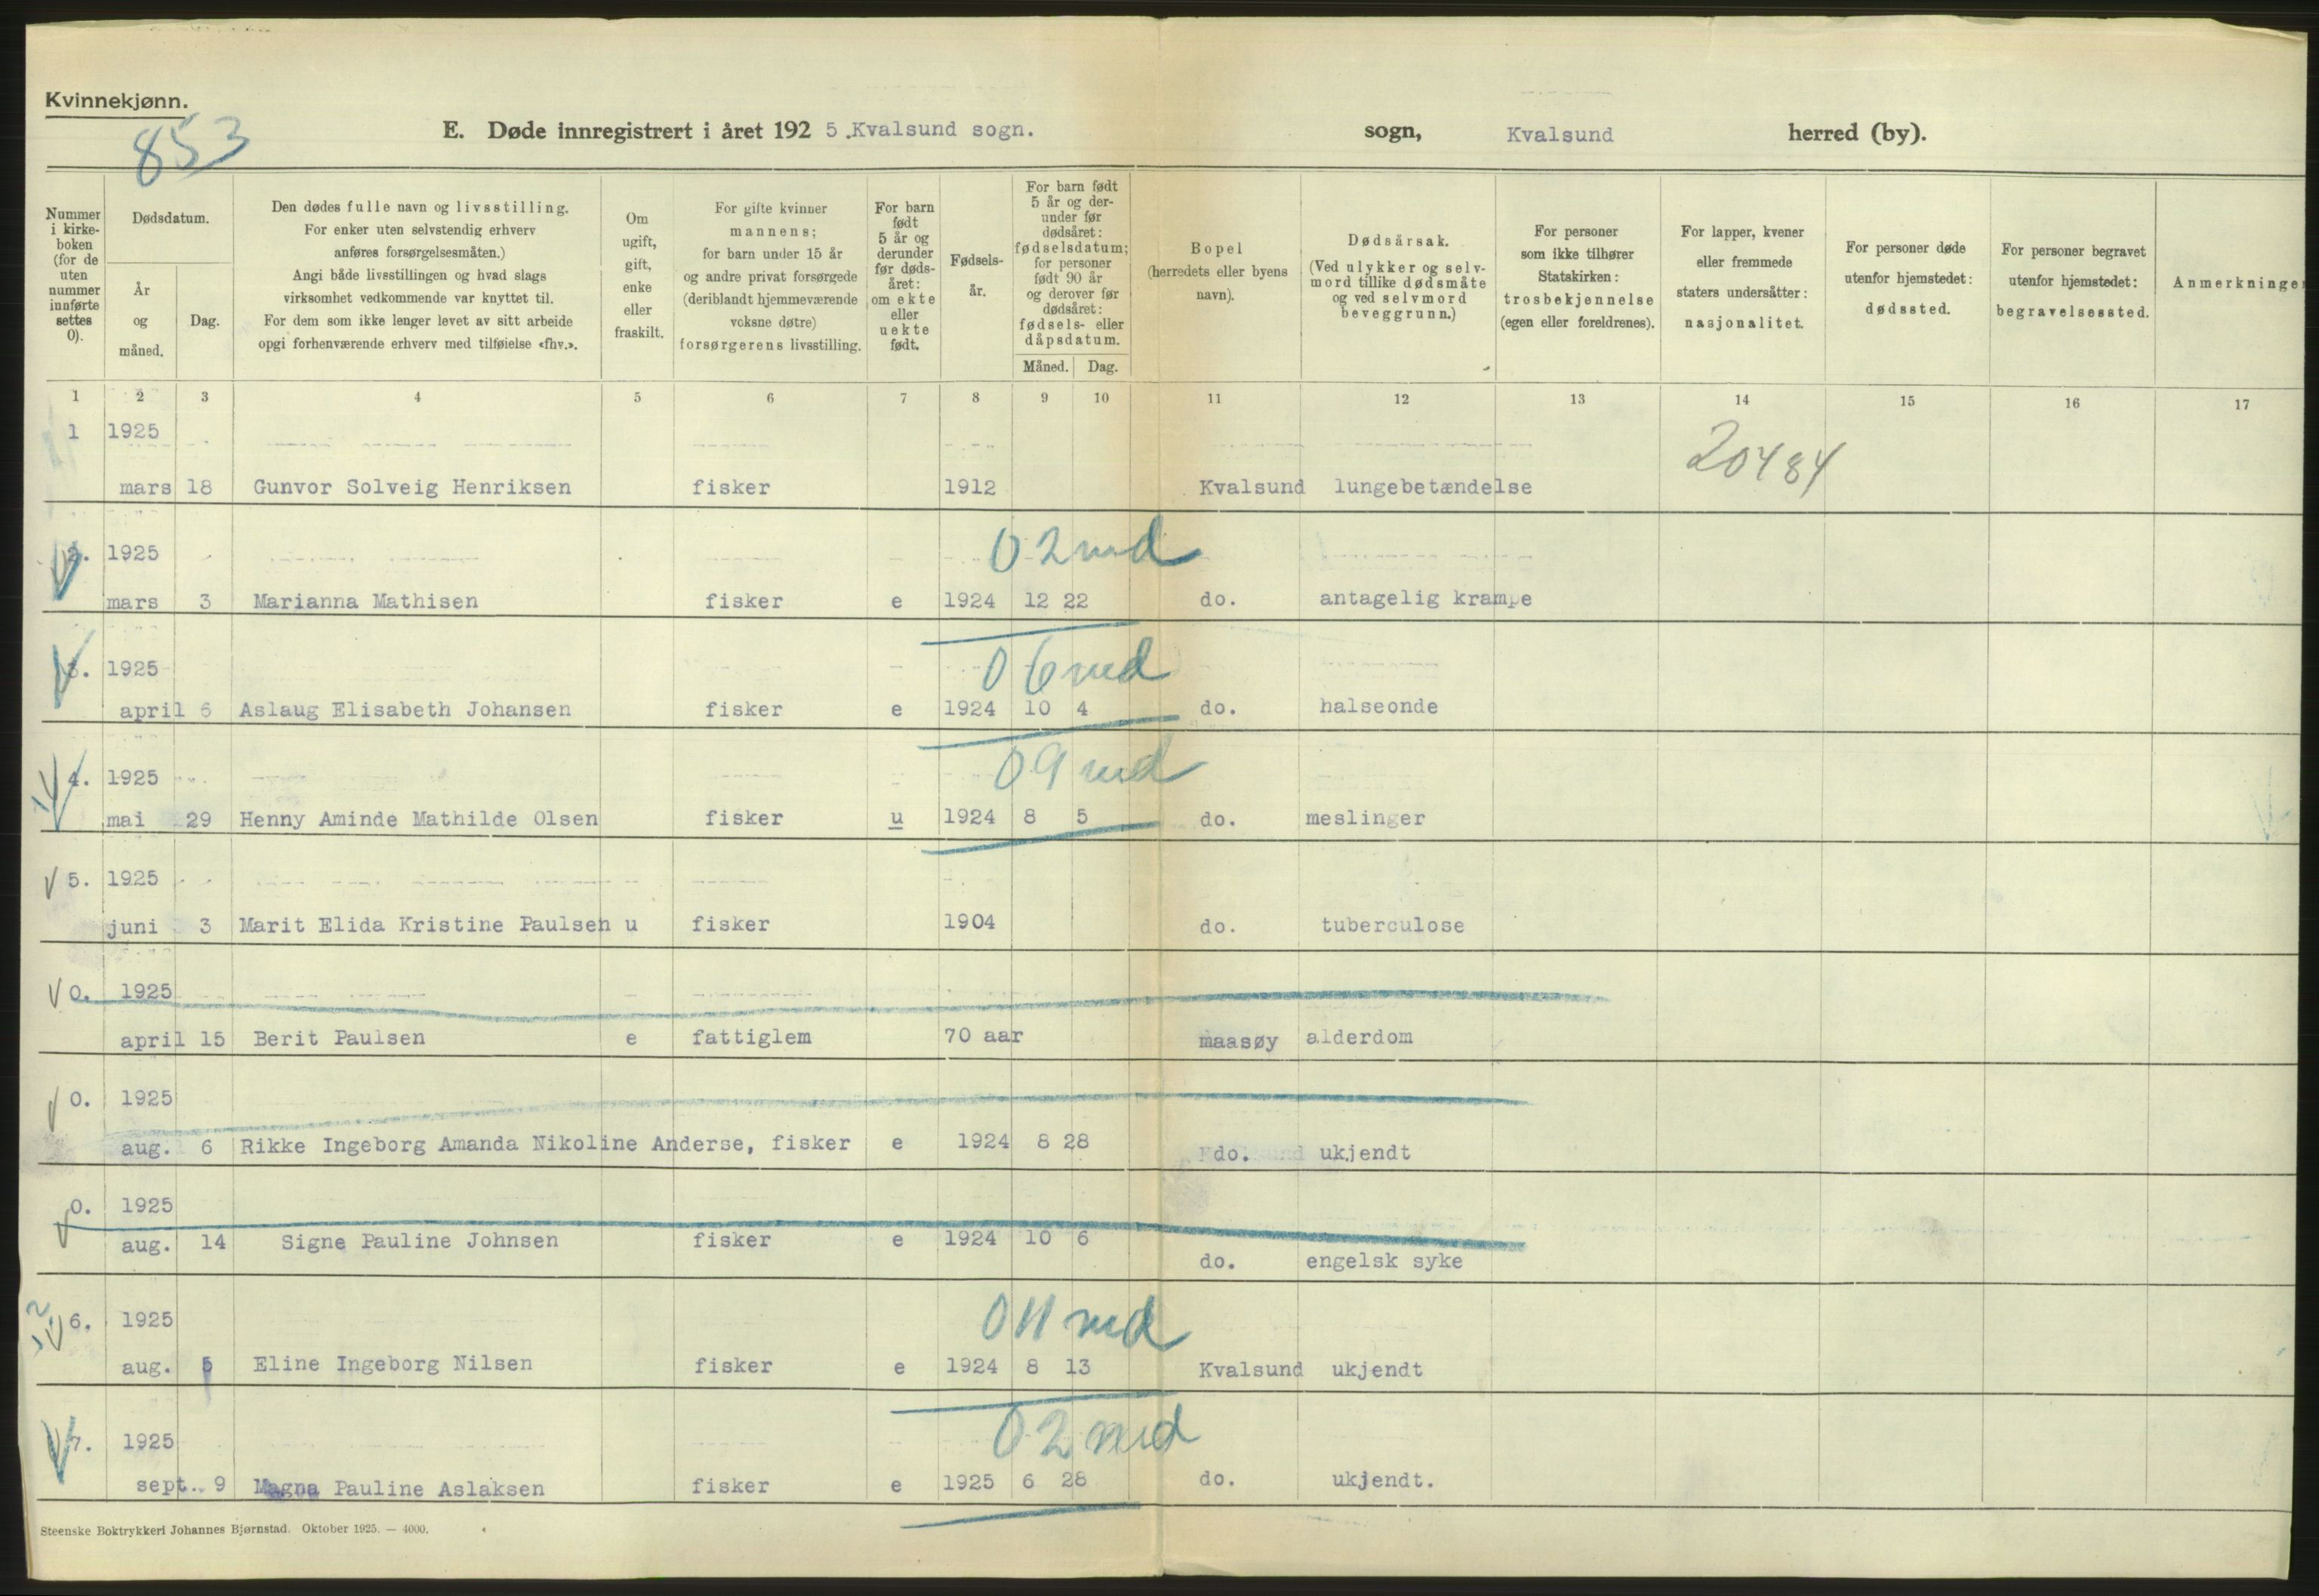 Kvinnekjønn.
853
E. Døde innregistrert i året 192 5.Kvalsund sogn. sogn, Kvalsund herred (by).
Nummer i kirke- boken (for de uten nummer innførte settes 0).
Dødsdatum.
År og måned.
Dag.
Den dødes fulle navn og livsstilling.
For enker uten selvstendig erhverv
anføres forsørgelsesmåten.)
Angi både livsstillingen og hvad slags
virksomhet vedkommende var knyttet til.
For dem som ikke lenger levet av sitt arbeide
opgi forhenværende erhverv med tilføielse «fhv.».
Om ugift, gift, enke eller fraskilt.
For gifte kvinner
mannens;
for barn under 15 år
og andre privat forsørgede
(deriblandt hjemmeværende
voksne døtre)
forsørgerens livsstilling.
For barn født 5 år og derunder før døds- året: om ekte eller uekte født.
Fødsels- år.
For barn født
5 år og der-
under før
dødsåret:
fødselsdatum;
for personer
født 90 år
og derover før
dødsåret:
fødsels- eller
dåpsdatum.
Måned. Dag.
Bopel
(herredets eller byens
navn).
Dødsårsak.
(Ved ulykker og selv-
mord tillike dødsmåte
og ved selvmord
beveggrunn.)
For personer
som ikke tilhører
Statskirken:
trosbekjennelse
(egen eller foreldrenes).
For lapper, kvener
eller fremmede
staters undersåtter:
nasjonalitet.
For personer døde
utenfor hjemstedet:
dødssted.
For personer begravet
utenfor hjemstedet:
begravelsessted.
Anmerkninger
1 2 3 4 5 6 7 8 9 10 11 12 13 14 15 16 17
1 1925
20484
mars 18 Gunvor Solveig Henriksen fisker 1912 Kvalsund lungebetændelse
2. 1925 0 2 md
mars 3 Marianna Mathisen fisker e 1924 12 22 do. antagelig krampe
3. 1925 0 6 md
april 6 Aslaug Elisabeth Johansen fisker e 1924 10 4 do. halseonde
4. 1925 0 9 md
mai 29 Henny Aminde Mathilde Olsen fisker u 1924 8 5 do. meslinger
5. 1925
juni 3 Marit Elida Kristine Paulsen u fisker 1904 do. tuberculose
0. 1925
april 15 Berit Paulsen e fattiglem 70 aar maasøy alderdom
0. 1925
aug. 6 Rikke Ingeborg Amanda Nikoline Anderse, fisker e 1924 8 28 do. ukjendt
0. 1925
aug. 14 Signe Pauline Johnsen fisker e 1924 10 6 do. engelsk syke
6. 1925 0 11 md
aug. 5 Eline Ingeborg Nilsen fisker e 1924 8 13 Kvalsund ukjendt
7. 1925 0 2 md
sept. 9 Magna Pauline Aslaksen fisker e 1925 6 28 do. ukjendt.
Steenske Boktrykkeri Johannes Bjørnstad. Oktober 1925. — 4000.